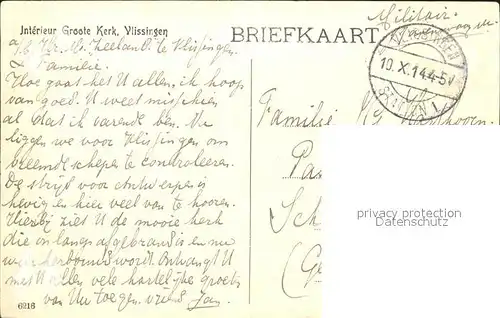 Intérieur Groote Kerk, Vlissingen
BRIEFKAART
Militair
a/b Hr. Ms. Zeeland te Vlissingen
Familie.
Hoe gaat het U allen, ik hoop
van goed. U weet misschien
al dat ik varende ben. Nu
liggen we voor Vlissingen om
vreemde schepen te controleeren.
De strijd voor Antwerpen is
hevig en hier veel van te hooren.
Hierbij ziet U de mooie kerk
die onlangs afgebrand is en nu
weer herbouwd wordt. Ontvangt U
met allen vele hartelijke groeten
van Uw toegen. vriend Jan.
6216
VLISSINGEN
10.X.14.4-5V
Familie
Pa
Sch
(Ge
privacy protection
Datenschutz